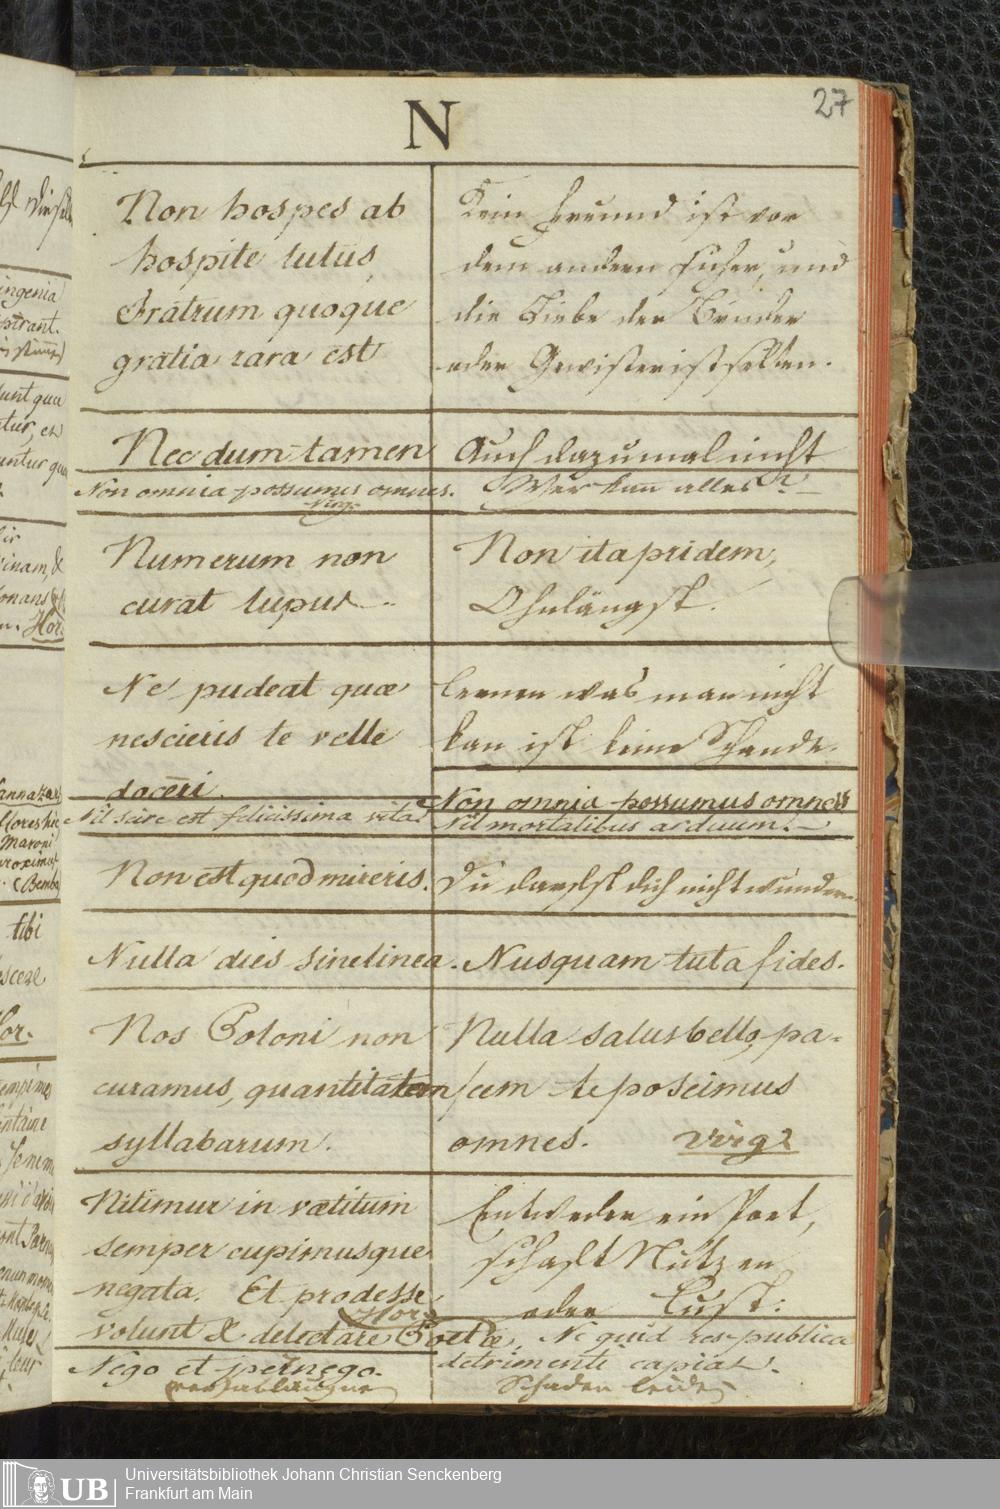 27
N
Non hospes ab
hospite tutus
Fratrum quoque
gratia rara est
Kein Freund ist vor
dem andern sicher, und
die Liebe der Brüder
oder Gewister ist selten.
Nec dum tamen
Auch dazumal nicht
Non omnia possumus omnes.
Virg.
Wer kan alles?
Numerum non
curat lupus
Non ita pridem,
Ohnlängst.
Ne pudeat quæ
nescieris te velle
doceri.
lernen was man nicht
kan ist keine Schande.
Nil scire est felicissima vita.
Non omnia possumus omnes
Nil mortalibus arduum.
Non est quod mireris.
Du darfst dich nicht wundern
Nulla dies sine linea.
Nusquam tuta fides.
Nos Poloni non
curamus, quantitatem
syllabarum.
Nulla salus bello, pa-
cem te poscimus
omnes. Virg.
Nitimur in vætitum
semper cupimusque
negata. Et prodesse
Hor.
volunt & delectare Poetæ.
Entweder ein Poet,
schaft Nutzen
oder Lust:
Nego et pernego.
Ne quid res publica
detrimenti capiat.
Schaden leide
ingenia
tibi
Hor.
Maroni
Universitätsbibliothek Johann Christian Senckenberg
Frankfurt am Main
UB